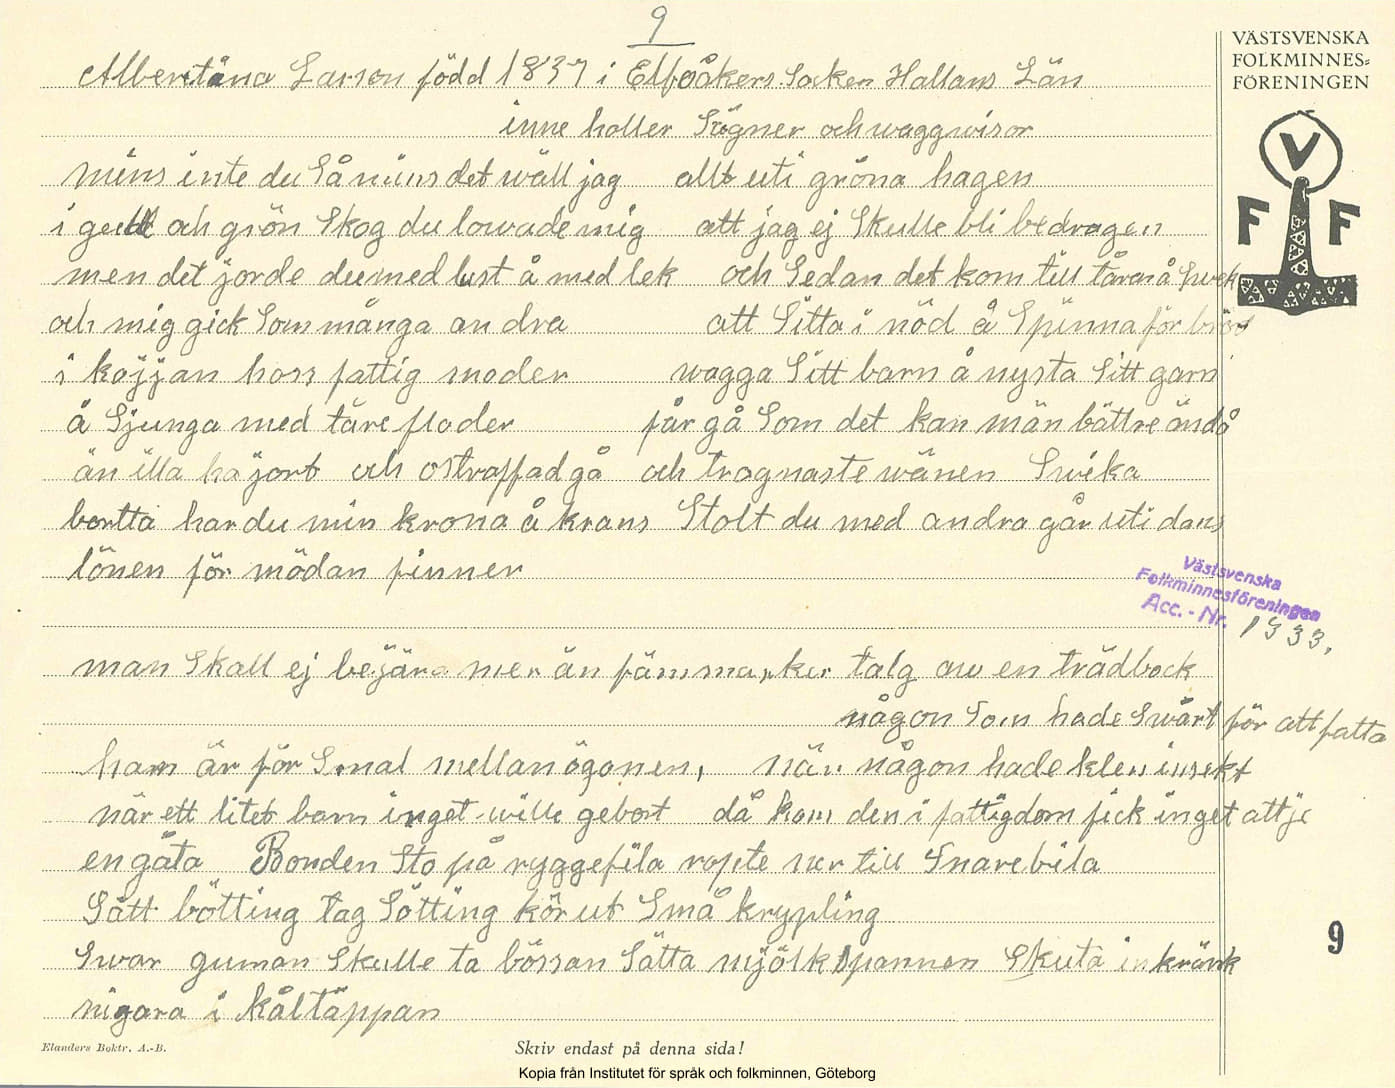 9
VÄSTSVENSKA
FOLKMINNES=
FÖRENINGEN
V
F F
Albertina Larson född 1837 i Elfsåkers Socken Hallans Län
inne holler Sägner och waggwisor
mins inte du Så mins det wäll jag allt uti gröna hagen
i gull och grön Skog du lowade mig att jag ej Skulle bli bedragen
men det jorde du med lust å med lek och Sedan det kom till tårar å Swek
och mig gick Som många andra att Sitta i nöd å Spinna för bröd
i köjjan hoss fattig moder wagga Sitt barn å nysta Sitt garn
å Sjunga med tåre floder får gå Som det kan män bättre ändå
än illa ha jort och ostraffad gå och trognaste wänen Swika
bortta har du min krona å krans Stolt du med andra går uti dans
lönen för mödan finner
Västsvenska
Folkminnesföreningen
Acc. - Nr. 1333.
man Skall ej bejära mer än fäm marker talg aw en trädbock
någon Som hade Swårt för att fatta
ham är för Smal mellan ögonen, när någon hade klen insekt
när ett litet barn inget wille gebort då kom den i fattigdom fick inget att je
en gåta Bonden Sto på ryggefila ropte ner till Snarebila
Sått bötting tag Sötting kör ut Små krypling
Swar guman Skulle ta börsan Sätta mjölkspannen Skuta in kräk
nigara i kåltäppan
9
Elanders Boktr. A.-B.
Skriv endast på denna sida!
Kopia från Institutet för språk och folkminnen, Göteborg